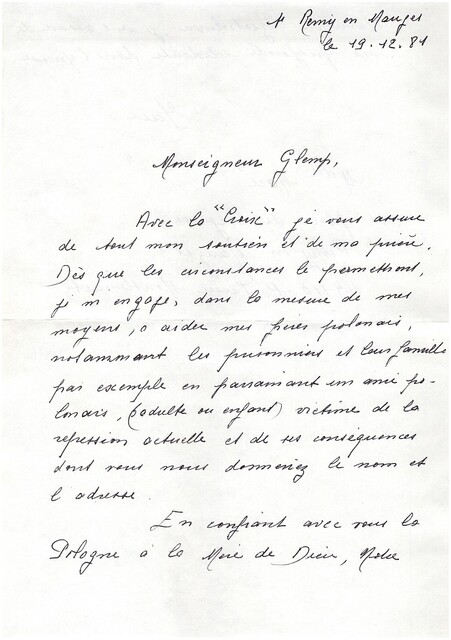 St Remy en Mauges
le 19.12.81
Monseigneur Glemp,
Avec la "Croix" je vous assure
de tout mon soutien et de ma prière.
Dès que les circonstances le permettront,
je m'engage, dans la mesure de mes
moyens, a aider mes frères polonais,
notamment les prisonniers et leur famille
par exemple en parrainant un ami po-
lonais, (adulte ou enfant) victime de la
répression actuelle et de ses conséquences
dont vous nous donneriez le nom et
l'adresse.
En confiant avec vous la
Pologne à la Mère de Dieu, Notre